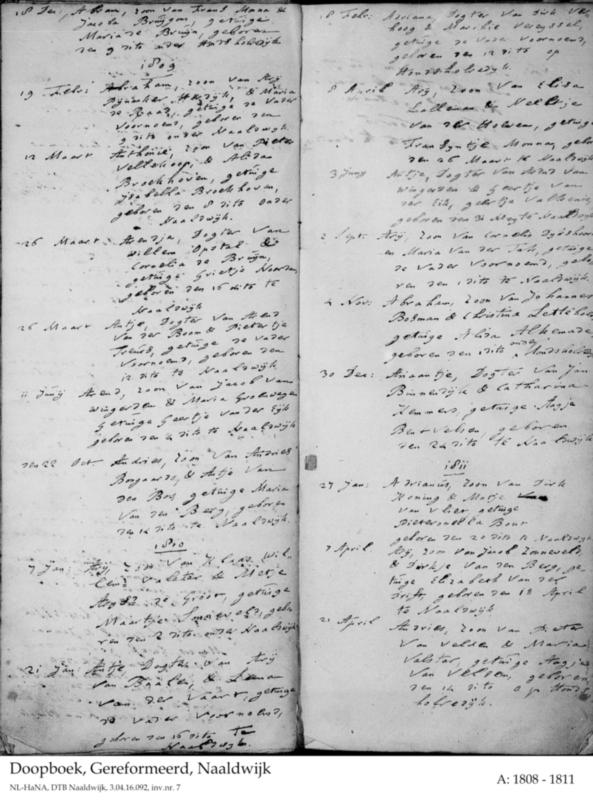 18 Dec, Abram, zoon van Frans Mann &
Jacoba Bruijgom, getuige
Maria de Bruijn, geboren
den 9 dito onder Hondsholredijk
1809
19 Febr: Abraham, zoon van Arij
& Maria
de Baas, getuige de vader
voornoemd, geboren den
9 dito onder Naaldwijk
12 Maart Anthonie, zoon van Pieter
& Alida
Broekhoven, getuige
Isabella Broekhoven,
geboren den 8 dito onder
Naaldwijk.
26 Maart Arendje, Dogter van
Willem Opstal &
Cornelia de Bruijn,
getuige Grietje
geboren den 16 dito te
Naaldwijk
26 Maart Antje, Dogter van Arend
van der Boon & Pietertje
getuige de vader
voornoemd, geboren den
12 dito te Naaldwijk
11 Junij Arend, zoon van Jacob van
Wingerden & Maria Groenewegen
Getuige Geertje van der Eijk
geboren den 4 dito te Naaldwijk
den 22 Oct Andries, zoon van Andries
Bogaard & Antje van
den Bos, getuige Maria
van den Berg, geboren
den 12 dito te Naaldwijk.
1810
7 Jan: Arij, zoon van Klaas Wil-
lem Valster & Metje
de Groot, getuige
Maartje gebo
ren den 2 dito onder Naaldwijk
21 Jan: Antje, Dogter van Arij
van Baalen, & Lena
van der Vaart, getuige
de vader voornoemd,
geboren den 16 dito te
Naaldwijk.
18 Febr: Adriana, Dogter van Dirk Ver
hoog & Marijtje
getuige de vader voornoemd,
geboren den 12 dito op
Hondsholredijk.
8 April Arij, zoon van Elisa
& Neeltje
van der Houwen, getuige
geboren
den 26 Maart te Naaldwijk
3 Junij Antje, Dogter van Arend van
Wingerden & Geertje van
der Eijk,
geboren den 31 Meij te Naaldwijk
2 Sept: Arij, zoon van Cornelis Dijkshoorn
en Maria van der Tak, getuige
de vader voornoemd, gebo
ren den 1 dito te Naaldwijk.
4 Nov: Abraham, zoon van Johannes
Bosman & Christina
getuige Alida Alkemade
geboren den 1 dito onder Hondsholredijk
30 Dec: Ariaantje, Dogter van Jan
Binnendijk & Catharina
Kemmers, getuige Aagje
van Velsen, geboren
den 24 dito te Naaldwijk
1811
27 Jan: Adrianus, zoon van Dirk
Koning & Matje
van Vliet getuige
Pieternella Bout
geboren den 20 dito te Naaldwijk
7 April Arij, zoon van Jacob Zonneveld
& Dirkje van den Berg, ge
tuige Elizabeth van der
Drift, geboren den April
te Naaldwijk
21 April Andries, zoon van Pieter
van Velden & Maria
Valster, getuige Aagje
van Velsen, geboren
den 14 dito op Honds
holredijk.
Doopboek, Gereformeerd, Naaldwijk
NL-HaNA, DTB Naaldwijk, 3.04.16.092, inv.nr. 7
A: 1808 - 1811